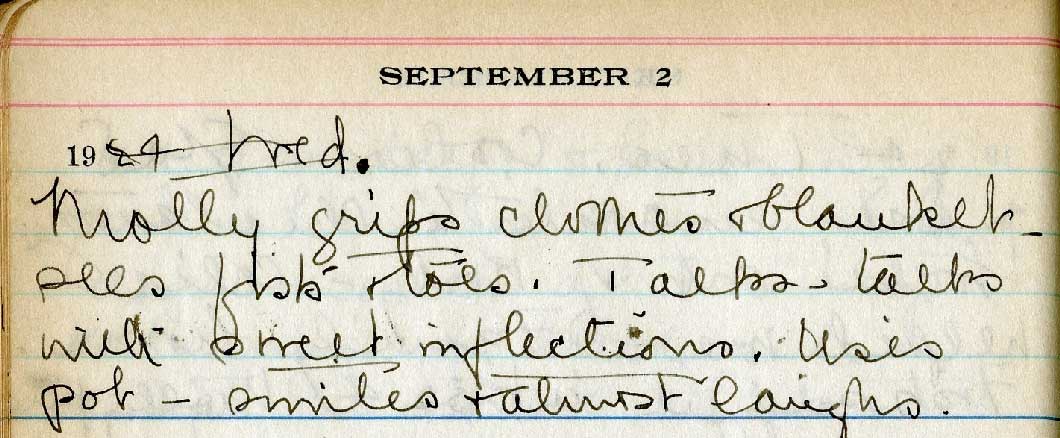 SEPTEMBER 2
1924 Wed.
Molly grips clothes + blanket -
sees fists + toes. Talks - talks
with sweet inflections. Uses
pot - smiles + almost laughs.